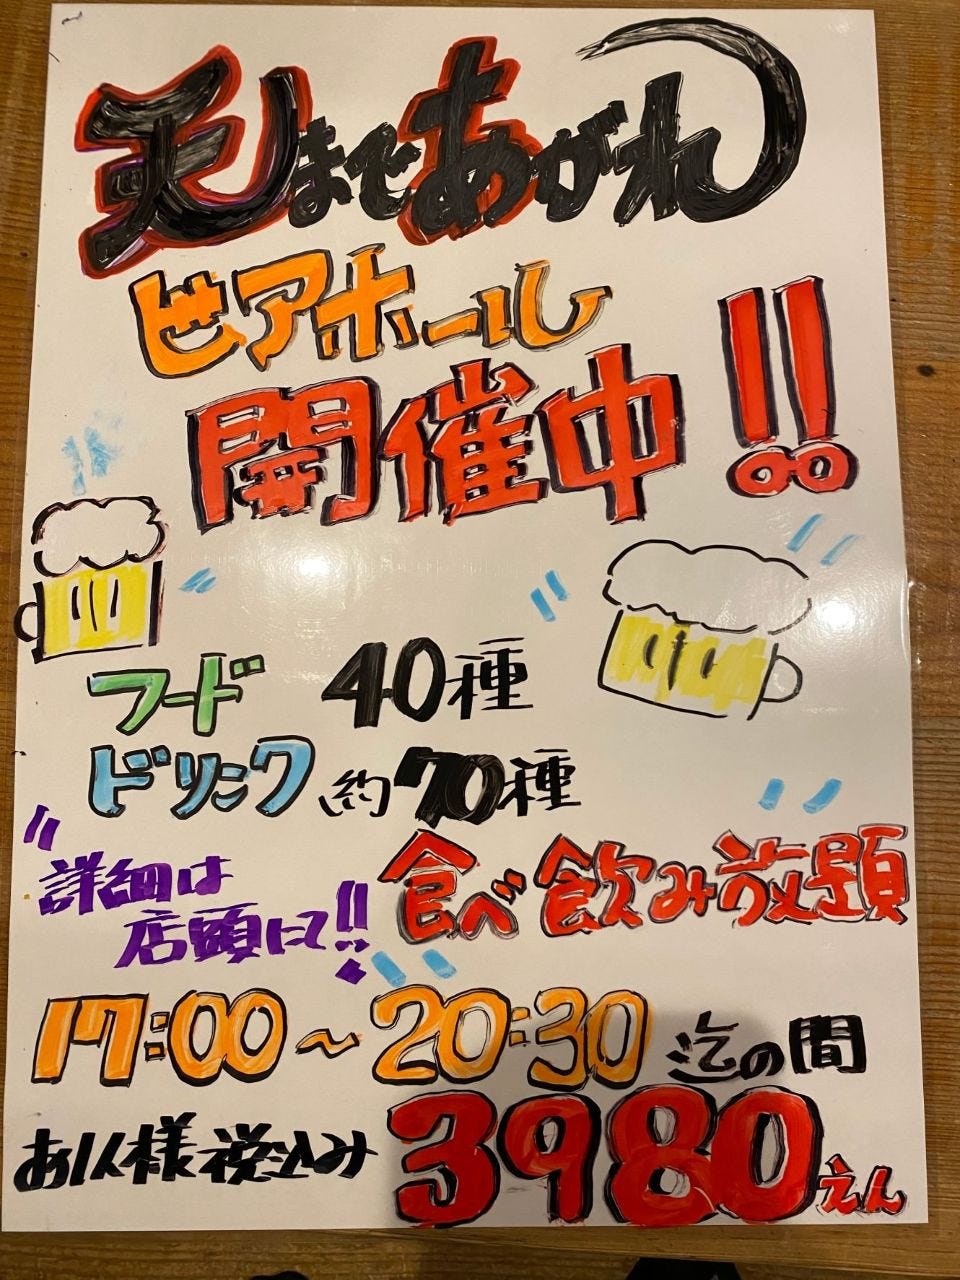 天まであがれ
ビアホール
開催中!!
フード 40種
ドリンク 約70種
詳細は
店頭にて!!
食べ飲み放題
17:00～20:30 迄の間
お1人様 税込み 3980えん